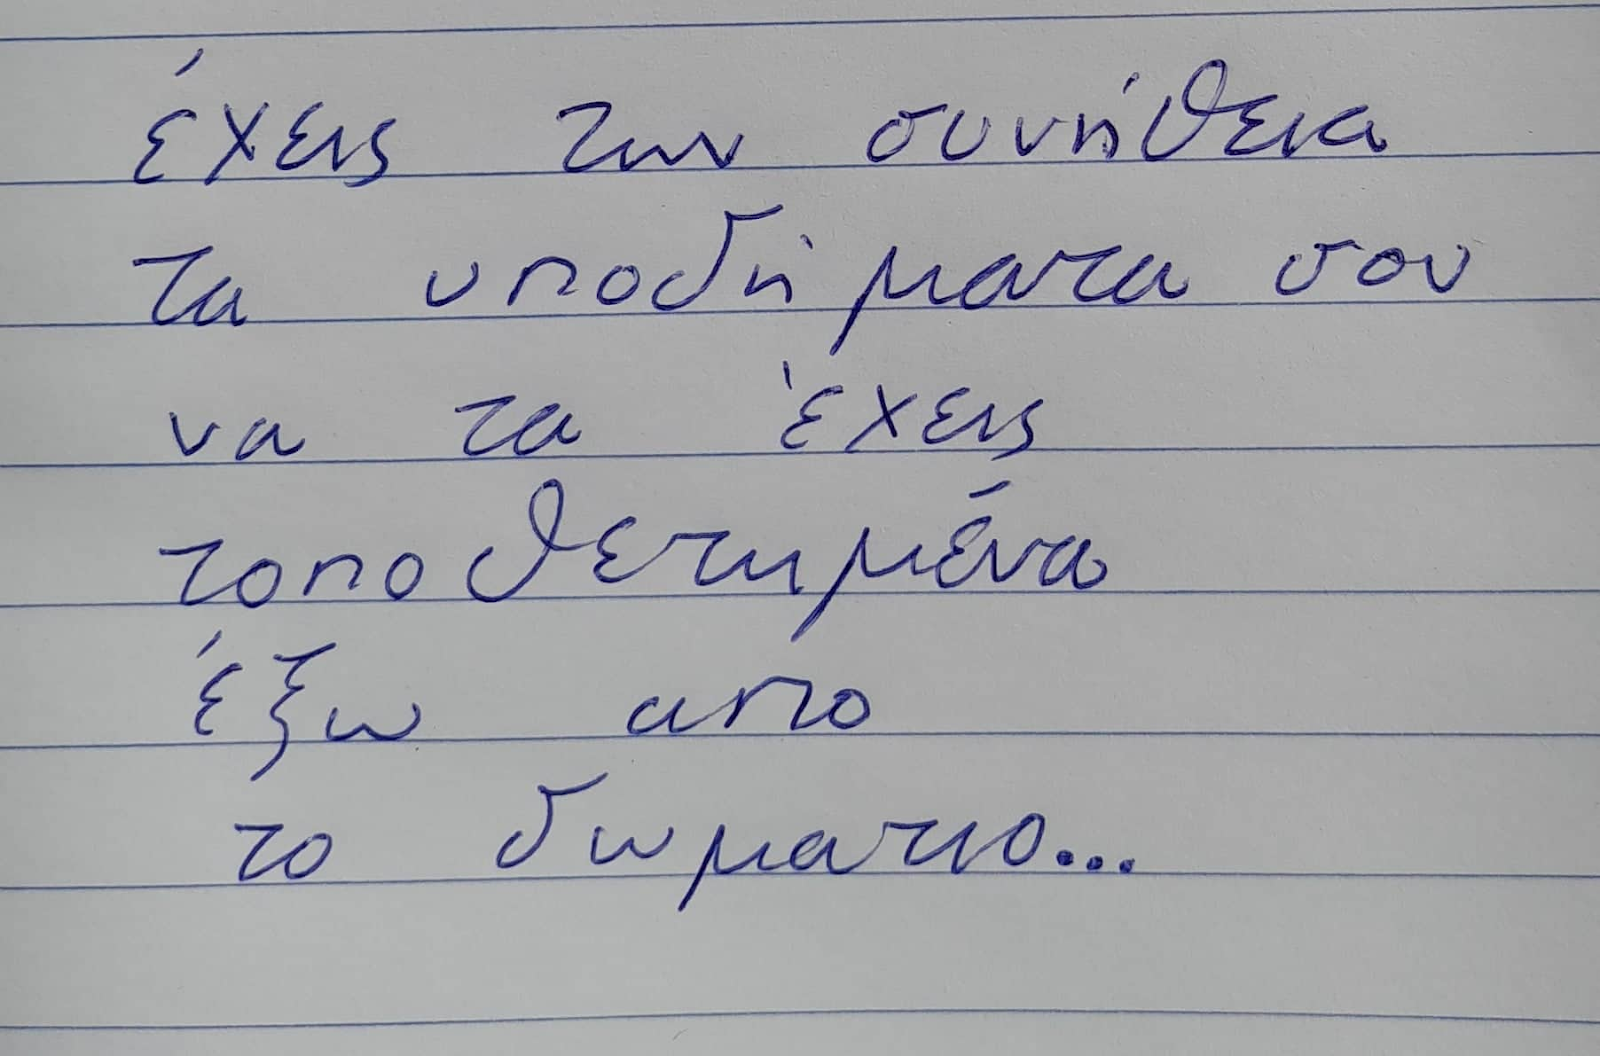 έχεις την συνήθεια
τα υποδήματα σου
να τα έχεις
τοποθετημένα
έξω απο
το δωματιο...